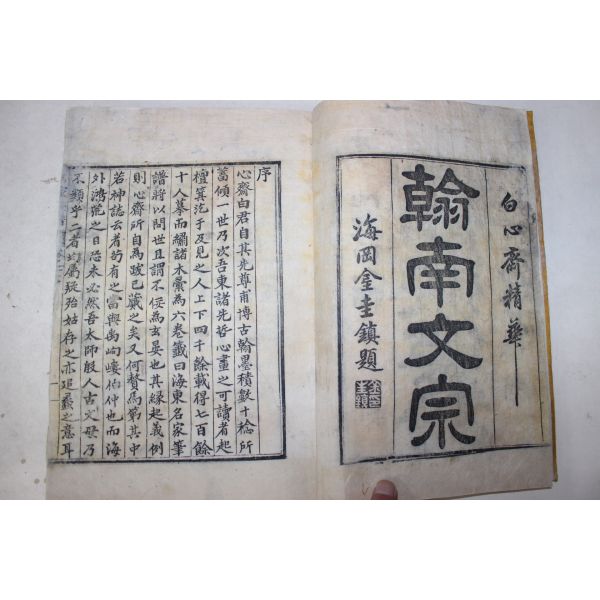 白心齋精華
翰南文宗
海岡金圭鎭題
序
心齋白君自其先尊甫博古翰墨積數十稔所
蓄傾一世乃次吾東諸先哲心畫之可讀者起
檀箕迄于及見之人上下四千餘載得七百餘
十人摹而繡諸木彙為六卷籤曰海東名家筆
譜將以問世且謂不佞為玄晏也其緣起義例
則心齋所自為跋已蔵之矣又何贅為第其中
若神誌云者的有之當與禹峋嶁伯仲也而海
外鴻荒之日恐未必然吾太師殷人古文毋乃
不類乎二者均屬疑殆姑存之亦追蠡之意耳